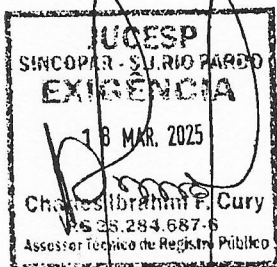 JUCESP
SINCOPAR - SJ.RIO PARDO
EXIGÊNCIA
18 MAR. 2025
Charles Ibrahim F. Cury
RG 28.284.687-6
Assessor Técnico de Registro Público